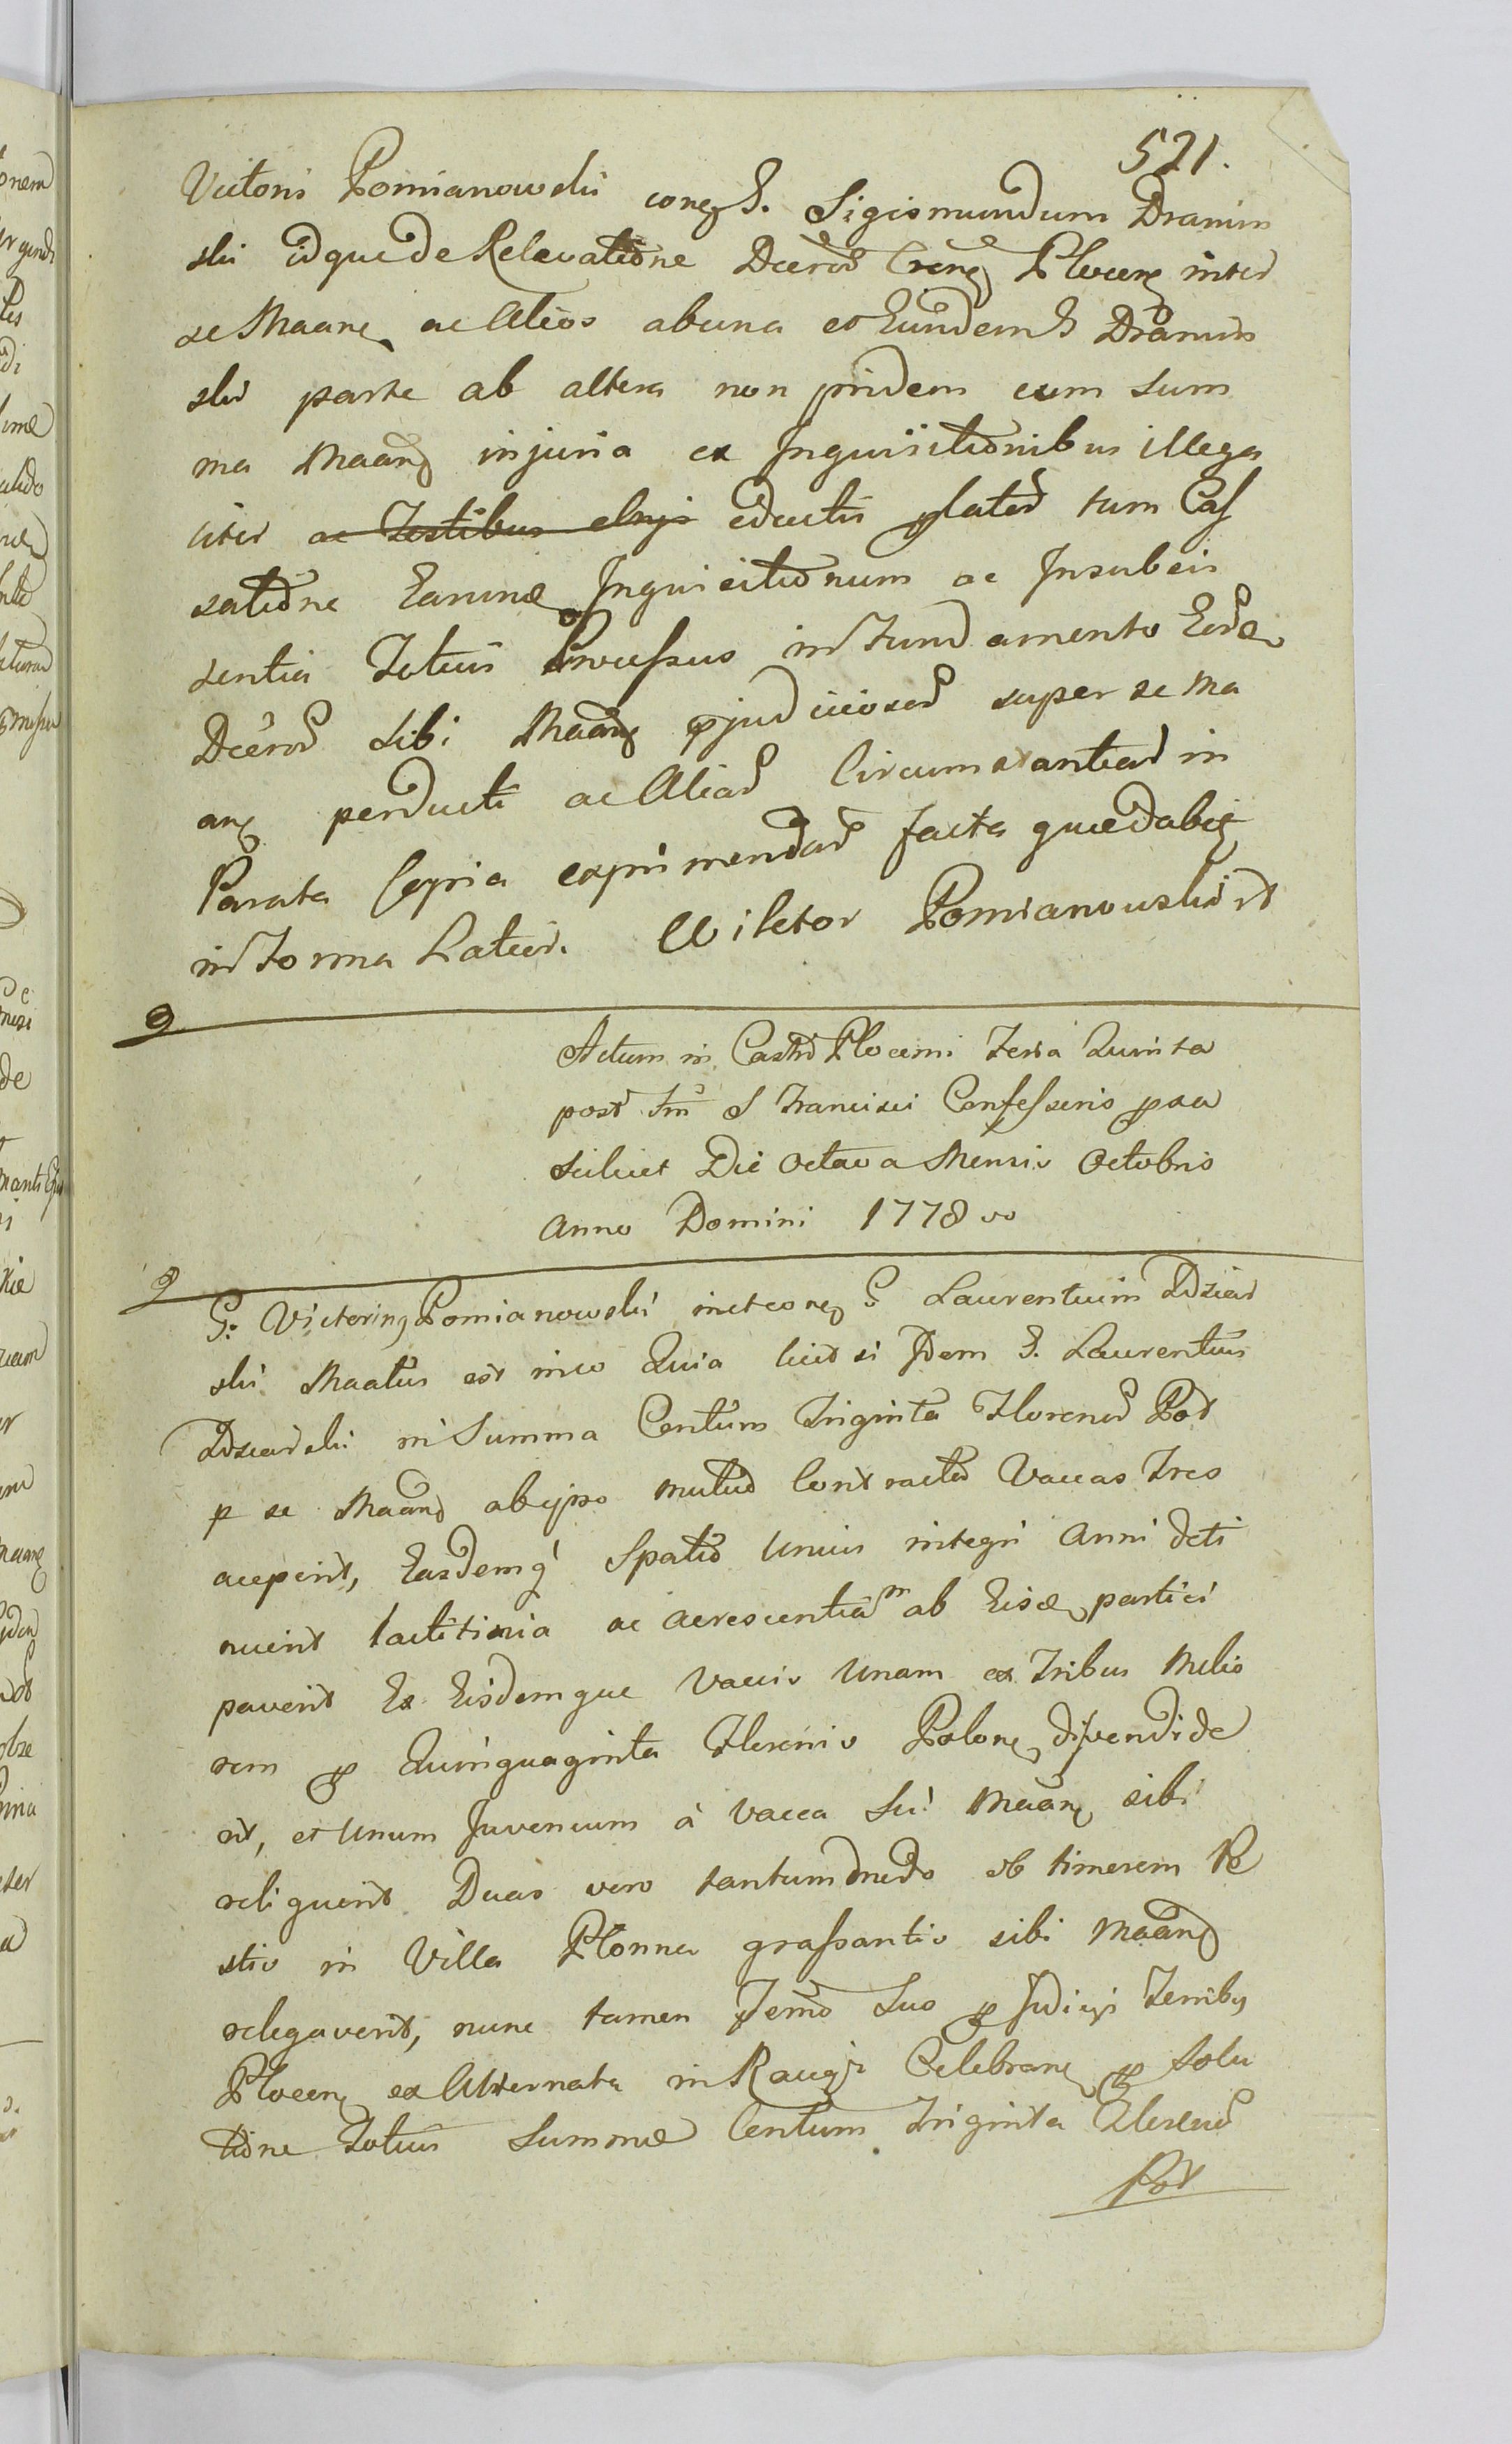 521.
Victoris Pomianowski coneg G. Sigismundum Dramin
ski idque de Relevatione Dcéror Cren Plocen inter
se Maaneg ac Alios ab una et Eundem G Dramin
ski parte ab altera non pridem cum sum
ma Maang injuria ex Inquisitionibus illega
liter ac Testibus eductis plator tum Cas
satione Earund Inquisitionum ac Insubsis
tentia Totius Processus in Fundamento Eord
Dcéror sibi Maang pjudiciosor super se Ma
ang perducti ac Aliar Circumstantiar in
Parata Copia exprimendar facta quædabit
in Forma Latior. Wiktor Pomianowski
Actum in Castro Plocensi Feria Quinta
post Fm S Francisci Confessoris pxa
scilicet Die Octava Mensis Octobris
Anno Domini 1778
G. Victoring Pomianowski inctcong G. Laurentium Dziar
ski Maatus est in eo Quia licet si Idem G. Laurentius
Dziarski in Summa Centum Triginta Floren Pol
p se Maang ab ipso mutuo Contracta Vaccas Tres
acceperit, Easdemq Spatio Unius integri Anni deti
nuerit lactitinia ac accrescentiam ab Eisd partici
paverit Ex Eisdemque Vaccis Unam ex Tribus Melio
rem p Quinquaginta Florenis Polong divendide
rit, et Unum Juvencum à Vacca Sui Maang sibi
reliquerit Duas vero tantummodo ob timorem Pe
stis in Villa Płonna grassantis sibi Maang
relegaverit, nunc tamen Termo Suo p Judicys Terribg
Plocen ex Alternata in Raciąż Celebrang p solu
tione Totius Summæ Centum Triginta Floren
Pol